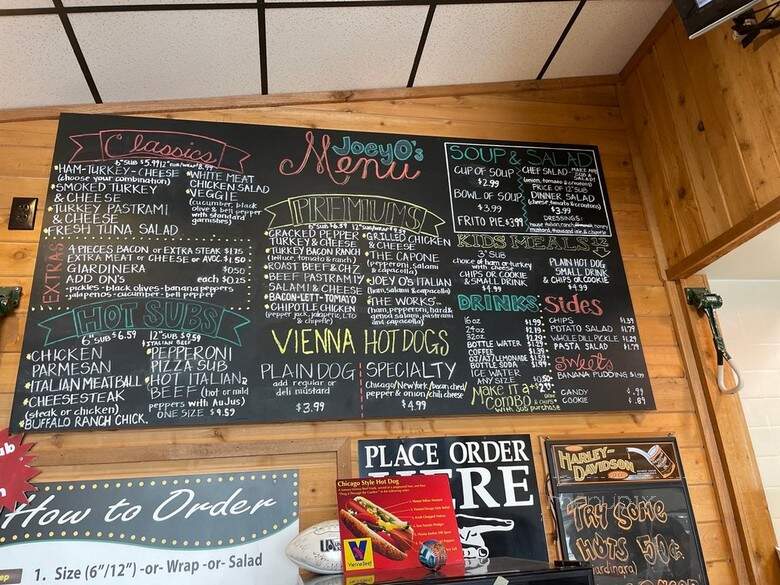 Classics
*HAM-TURKEY-CHEESE
(choose your combination)
*SMOKED TURKEY
& CHEESE
*TURKEY PASTRAMI
& CHEESE
*FRESH TUNA SALAD
*WHITE MEAT
CHICKEN SALAD
*VEGGIE
(cucumber, black
olive & bell pepper
with standard
garnishes)
EXTRAS
4 PIECES BACON or EXTRA STEAK $1.75
EXTRA MEAT or CHEESE or AVOC. $1.50
GIARDINERA $0.50
ADD ON'S each $0.25
-pickles-black olives-banana peppers
-jalapenos-cucumber-bell pepper
HOT SUBS
6" SUB $6.59
12" SUB $9.59
*CHICKEN
PARMESAN
*ITALIAN MEATBALL
*CHEESESTEAK
(steak or chicken)
*BUFFALO RANCH CHICK.
*PEPPERONI
PIZZA SUB
*HOT ITALIAN
BEEF (hot or mild
peppers with AuJus)
ONE SIZE $9.59
JoeyO's
Menu
PREMIUMS
CRACKED PEPPER
TURKEY & CHEESE
*TURKEY BACON RANCH
(lettuce, tomato & ranch)
*ROAST BEEF & CHZ
*BEEF PASTRAMI
SALAMI & CHEESE
*BACON-LETT-TOMATO
*CHIPOTLE CHICKEN
*GRILLED CHICKEN
& CHEESE
*THE CAPONE
(pepperoni, salami
& capacolla)
*JOEY O'S ITALIAN
(ham, salami & capacolla)
*THE WORKS...
(ham, pepperoni, hard &
genoa salami, pastrami
and capacolla)
VIENNA HOT DOGS
PLAIN DOG
add regular or
deli mustard
$3.99
SPECIALTY
Chicago/New York/bacon ched/
pepper & onion/chili cheese
$4.99
SOUP & SALAD
CUP OF SOUP
$2.99
BOWL OF SOUP
$3.99
FRITO PIE $3.99
CHEF SALAD-MAKE ANY
SUB A
SALAD!
(onion, tomato & croutons)
PRICE OF 12" SUB
DINNER SALAD
(cheese, tomato & croutons)
$3.99
DRESSINGS:
KIDS MEALS
3" SUB
choice of ham or turkey
with cheese
CHIPS OR COOKIE
& SMALL DRINK
$4.99
PLAIN HOT DOG
SMALL DRINK
& CHIPS OR COOKIE
$4.99
DRINKS
16 oz
24 oz
32 oz
BOTTLE WATER $1.29
COFFEE
BOTTLE SODA
ICE WATER
ANY SIZE
Make it a
"COMBO"
with sub purchase
Sides
CHIPS
POTATO SALAD $1.79
WHOLE DILL PICKLE $1.29
PASTA SALAD $1.79
Sweets
BANANA PUDDING
CANDY
COOKIE
PLACE ORDER
HERE
Chicago Style Hot Dog
Vienna Beef
How to Order
1. Size (6"/12") -or- Wrap -or- Salad
HARLEY-
DAVIDSON
TRY SOME
HOTS 50¢